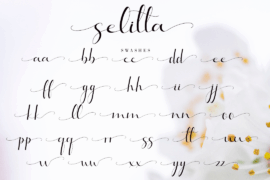 selitta
SWASHES
aa bb cc dd ee
ff gg hh ii jj
kk ll mm nn oo
pp qq rr ss tt uu
vv ww xx yy zz